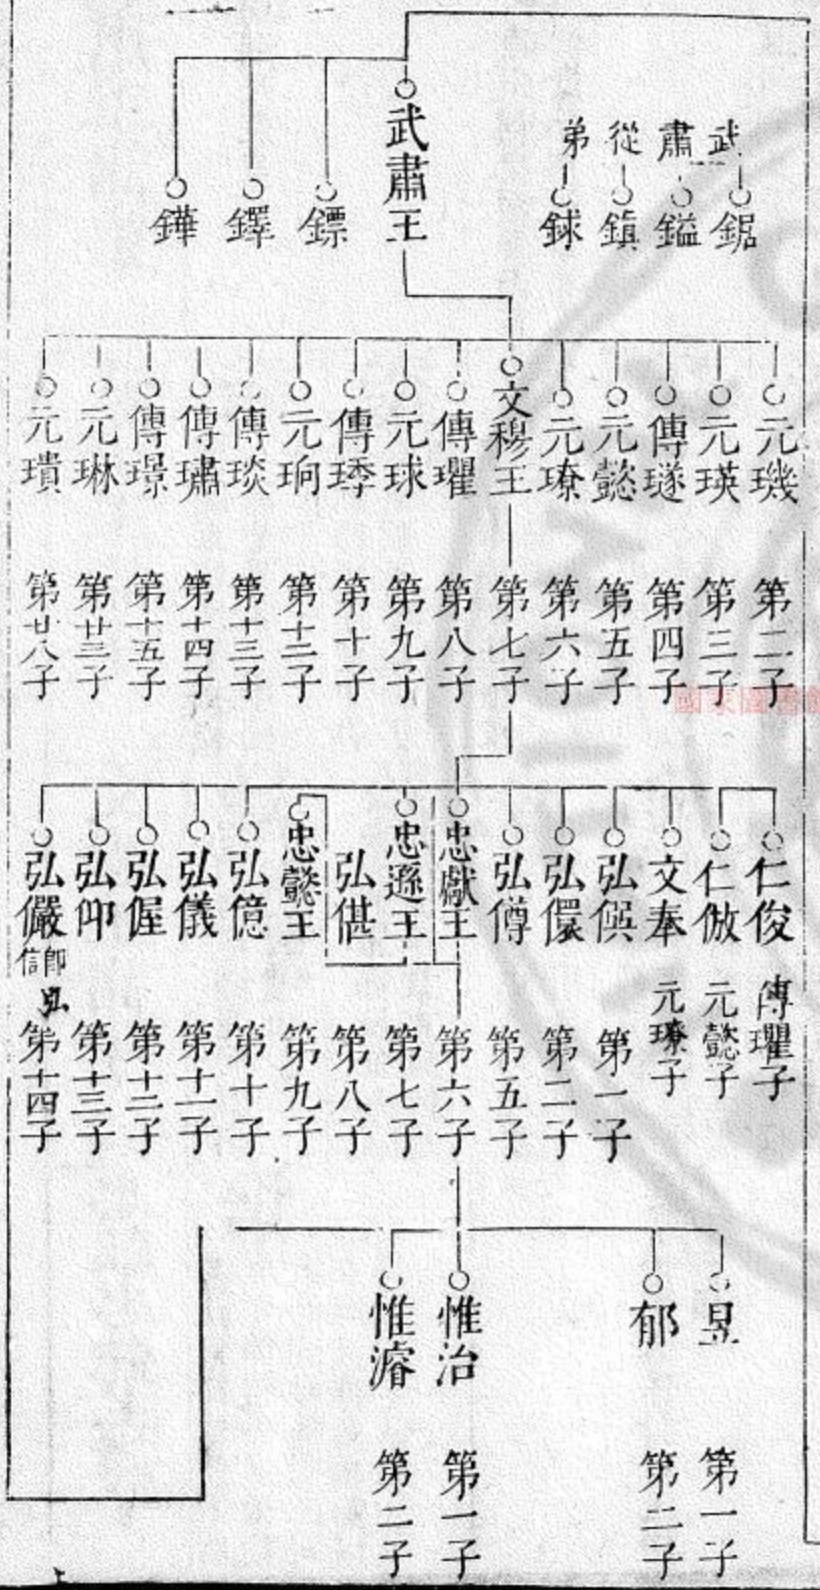 武肅從弟
鋸
鎰
鎮
銶
武肅王
鏢
鐸
鏵
元璣 第二子
元瑛 第三子
傳璲 第四子
元懿 第五子
元璙 第六子
文穆王 第七子
傳瓘 第八子
元球 第九子
傳㻑 第十子
元珦 第十二子
傳琰 第十三子
傳璛 第十四子
傳璟 第十五子
元琳 第廿三子
元璝 第廿八子
仁俊 傳瓘子
仁倣 元懿子
文奉 元璙子
弘僎 第一子
弘儇 第二子
弘僔 第五子
忠獻王 第六子
忠遜王 第七子
弘偡 第八子
忠懿王 第九子
弘億 第十子
弘儀 第十一子
弘偓 第十二子
弘仰 第十三子
弘儼 即弘信 第十四子
昱 第一子
郁 第二子
惟治 第一子
惟濬 第二子
國家圖書館